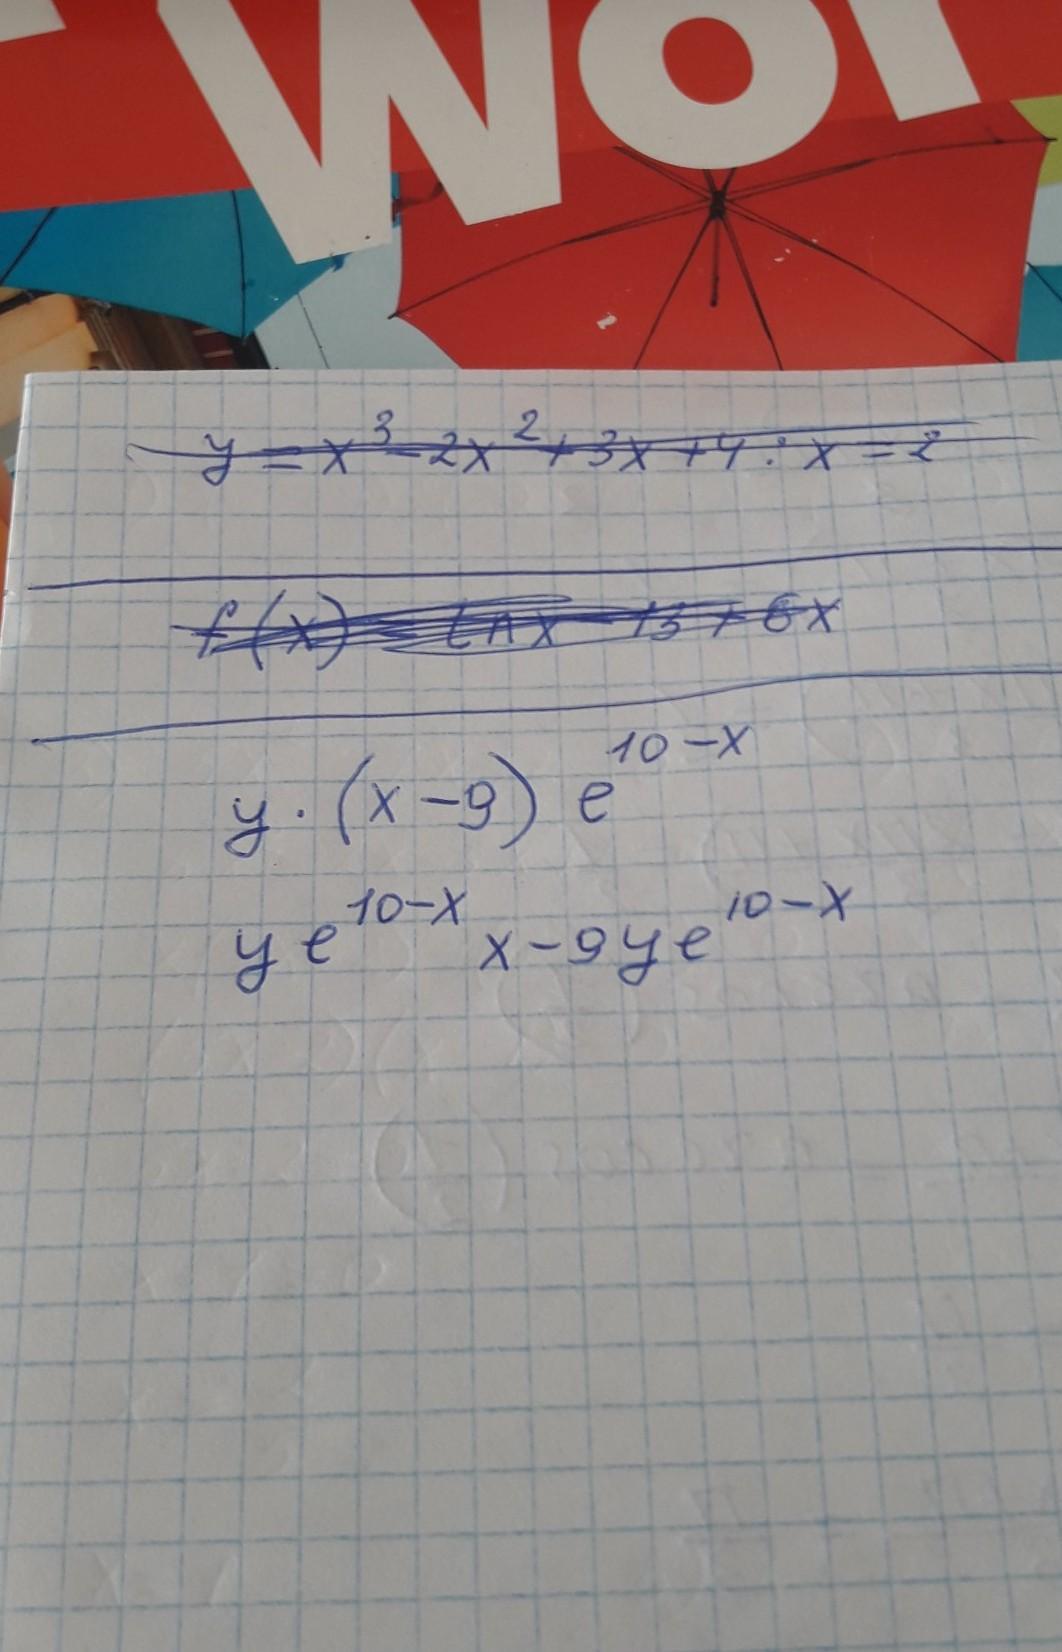 WOR
y = x³ - 2x² + 3x + 4 : x = 2
f(x) = lnx - 15 + 6x
y · (x - 9) e^{10 - x}
y e^{10 - x} x - 9 y e^{10 - x}